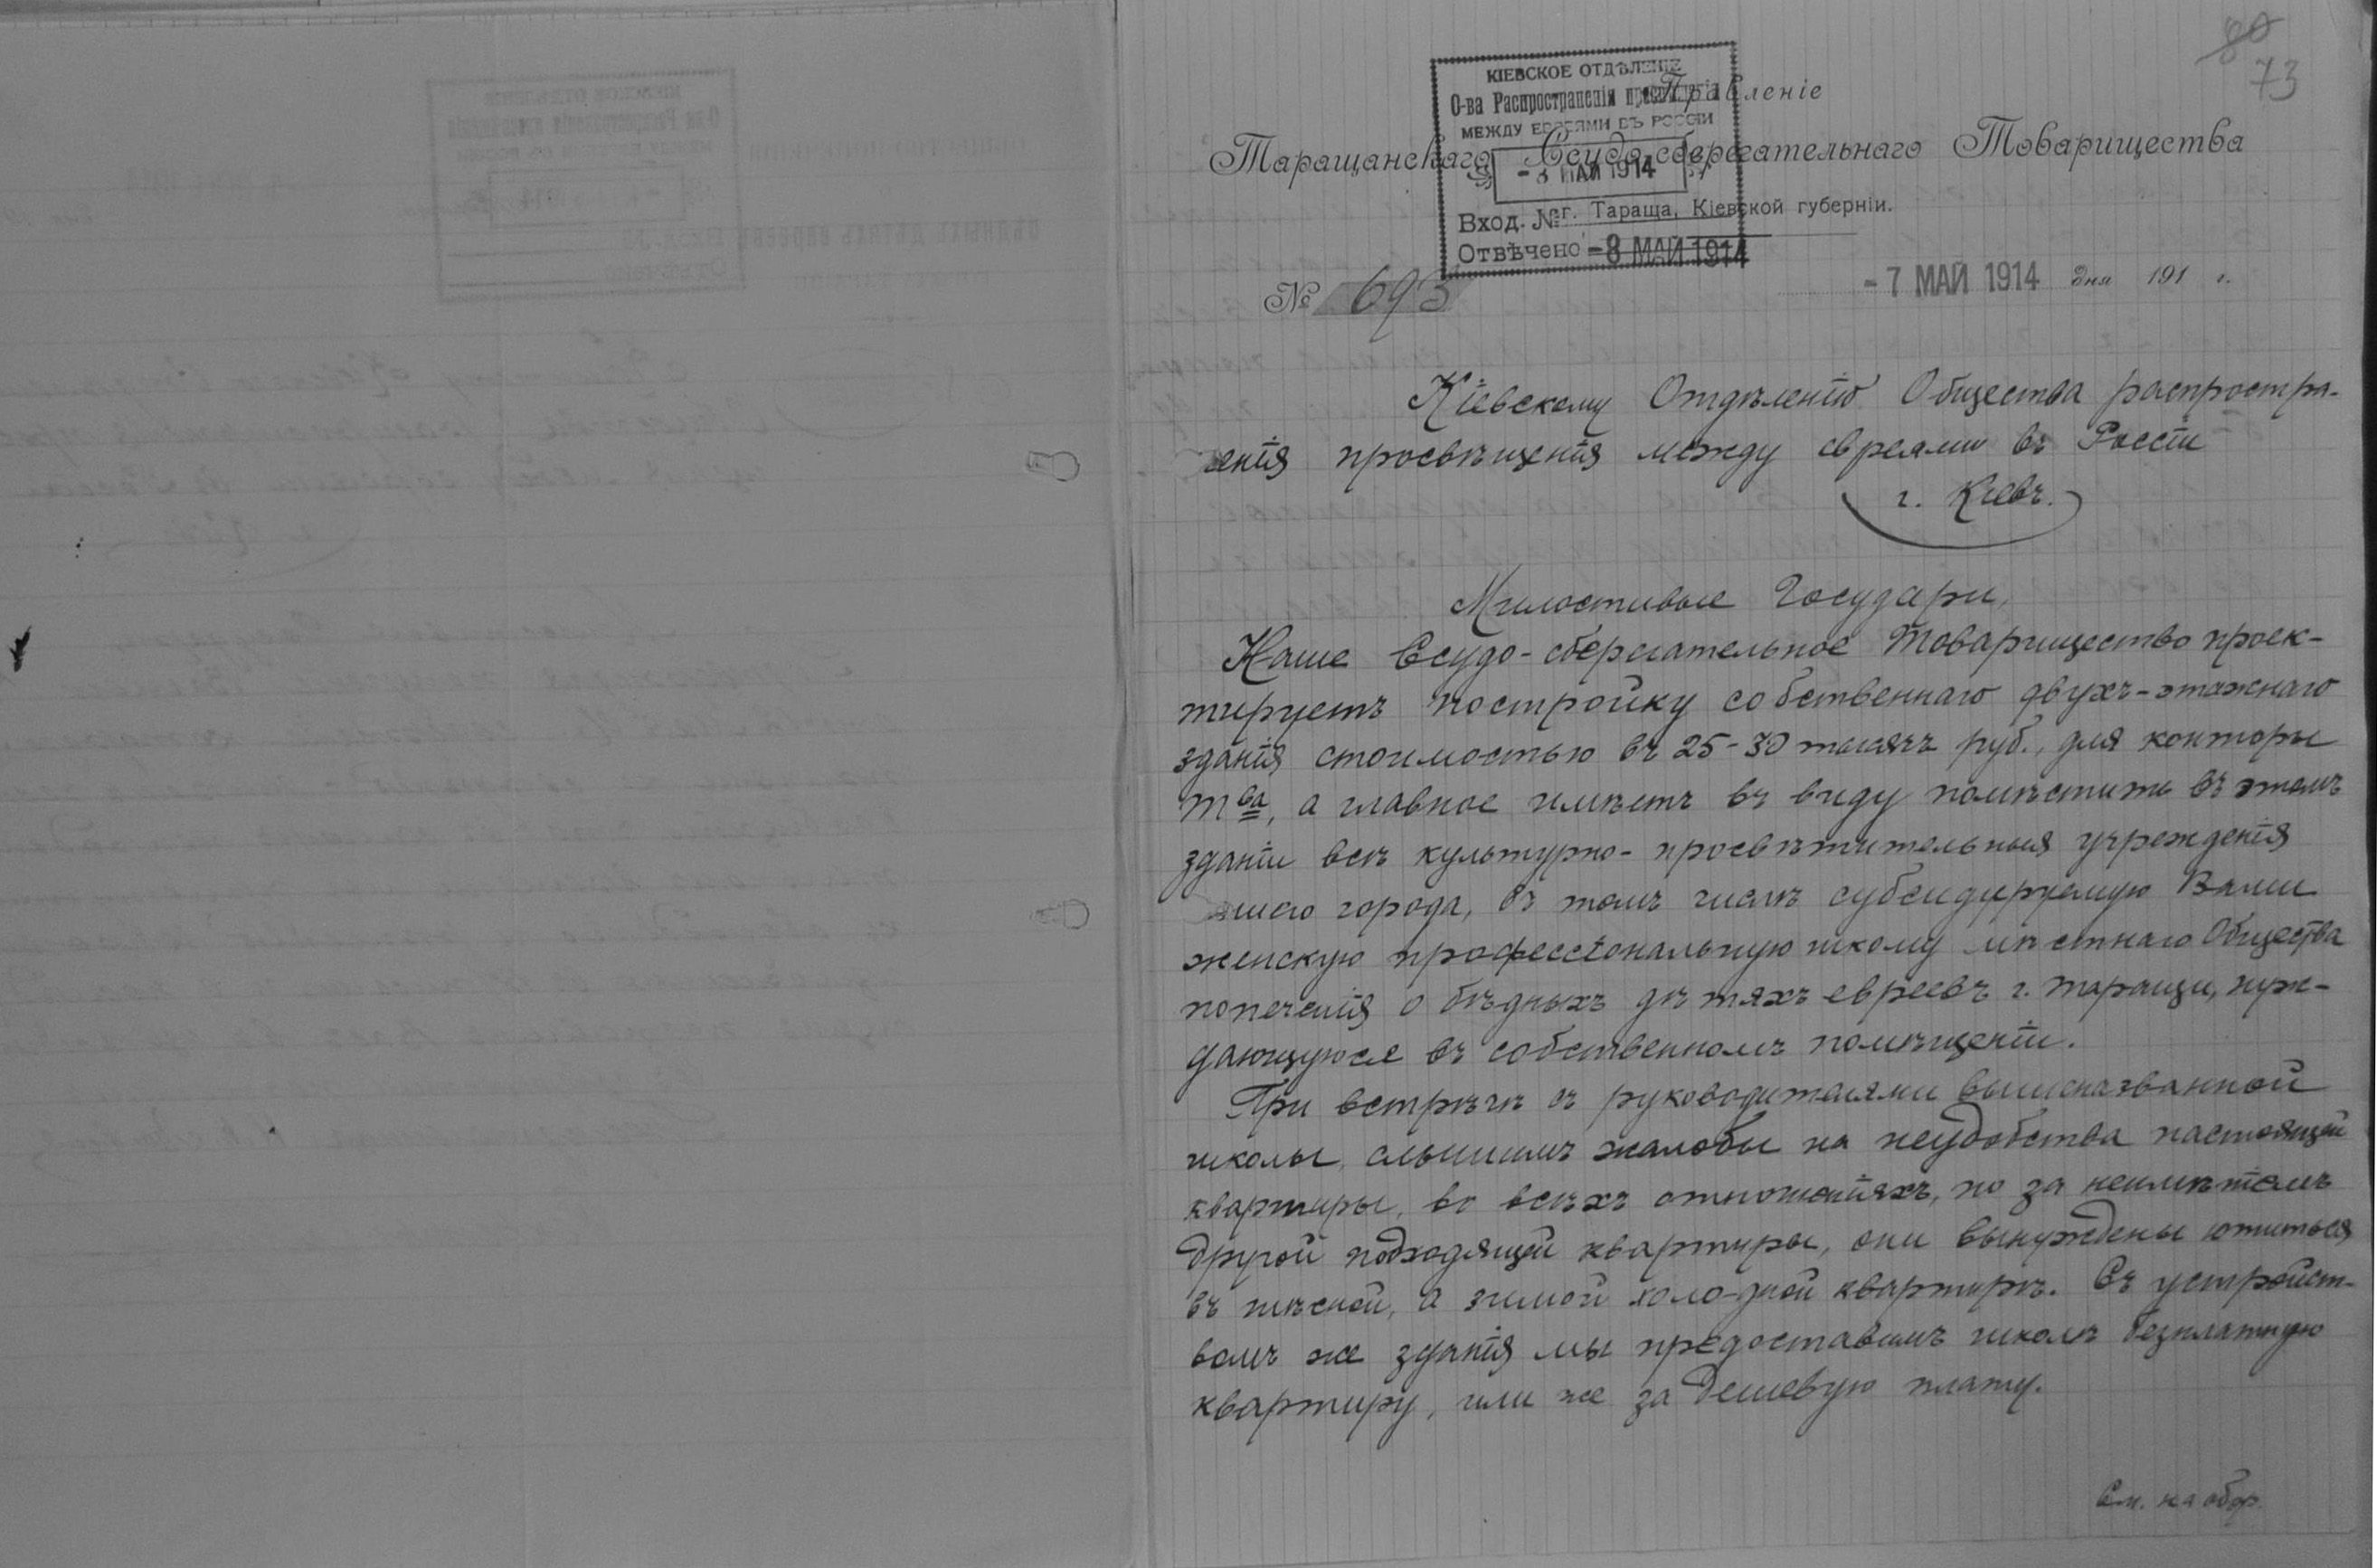 80
73
КІЕВСКОЕ ОТДѢЛЕНІЕ
О-ва Распространенія просвѣщенія
МЕЖДУ ЕВРЕЯМИ ВЪ РОССІИ
- 8 МАЙ 1914
Вход. №
Отвѣчено -8 МАЙ 1914
Правленіе
Таращанскаго Ссудо-сберегательнаго Товарищества
г. Тараща, Кіевской губерніи.
№ 693
- 7 МАЙ 1914 дня 191 г.
Кіевскому Отдѣленію Общества распростра-
ненія просвѣщенія между евреями въ Россіи
г. Кіевъ.
Милостивые Государи,
Наше Ссудо-сберегательное Товарищество проек-
тируетъ постройку собственнаго двухъ-этажнаго
зданія стоимостью въ 25-30 тысячъ руб., для конторы
Тва, а главное имѣетъ въ виду помѣстить въ этомъ
зданіи всѣ культурно-просвѣтительныя учрежденія
нашего города, въ томъ числѣ субсидируемую Вами
женскую профессіональную школу мѣстнаго Общества
попеченія о бѣдныхъ дѣтяхъ евреевъ г. Таращи, нуж-
дающуюся въ собственномъ помѣщеніи.
При встрѣчѣ съ руководителями вышеназванной
школы, слышимъ жалобы на неудобства настоящей
квартиры, во всѣхъ отношеніяхъ, но за неимѣніемъ
другой подходящей квартиры, они вынуждены ютиться
въ тѣсной, а зимой холо-дной квартирѣ. Съ устройст-
вомъ же зданія мы предоставимъ школѣ безплатную
квартиру, или же за дешевую плату.
См. на обор.